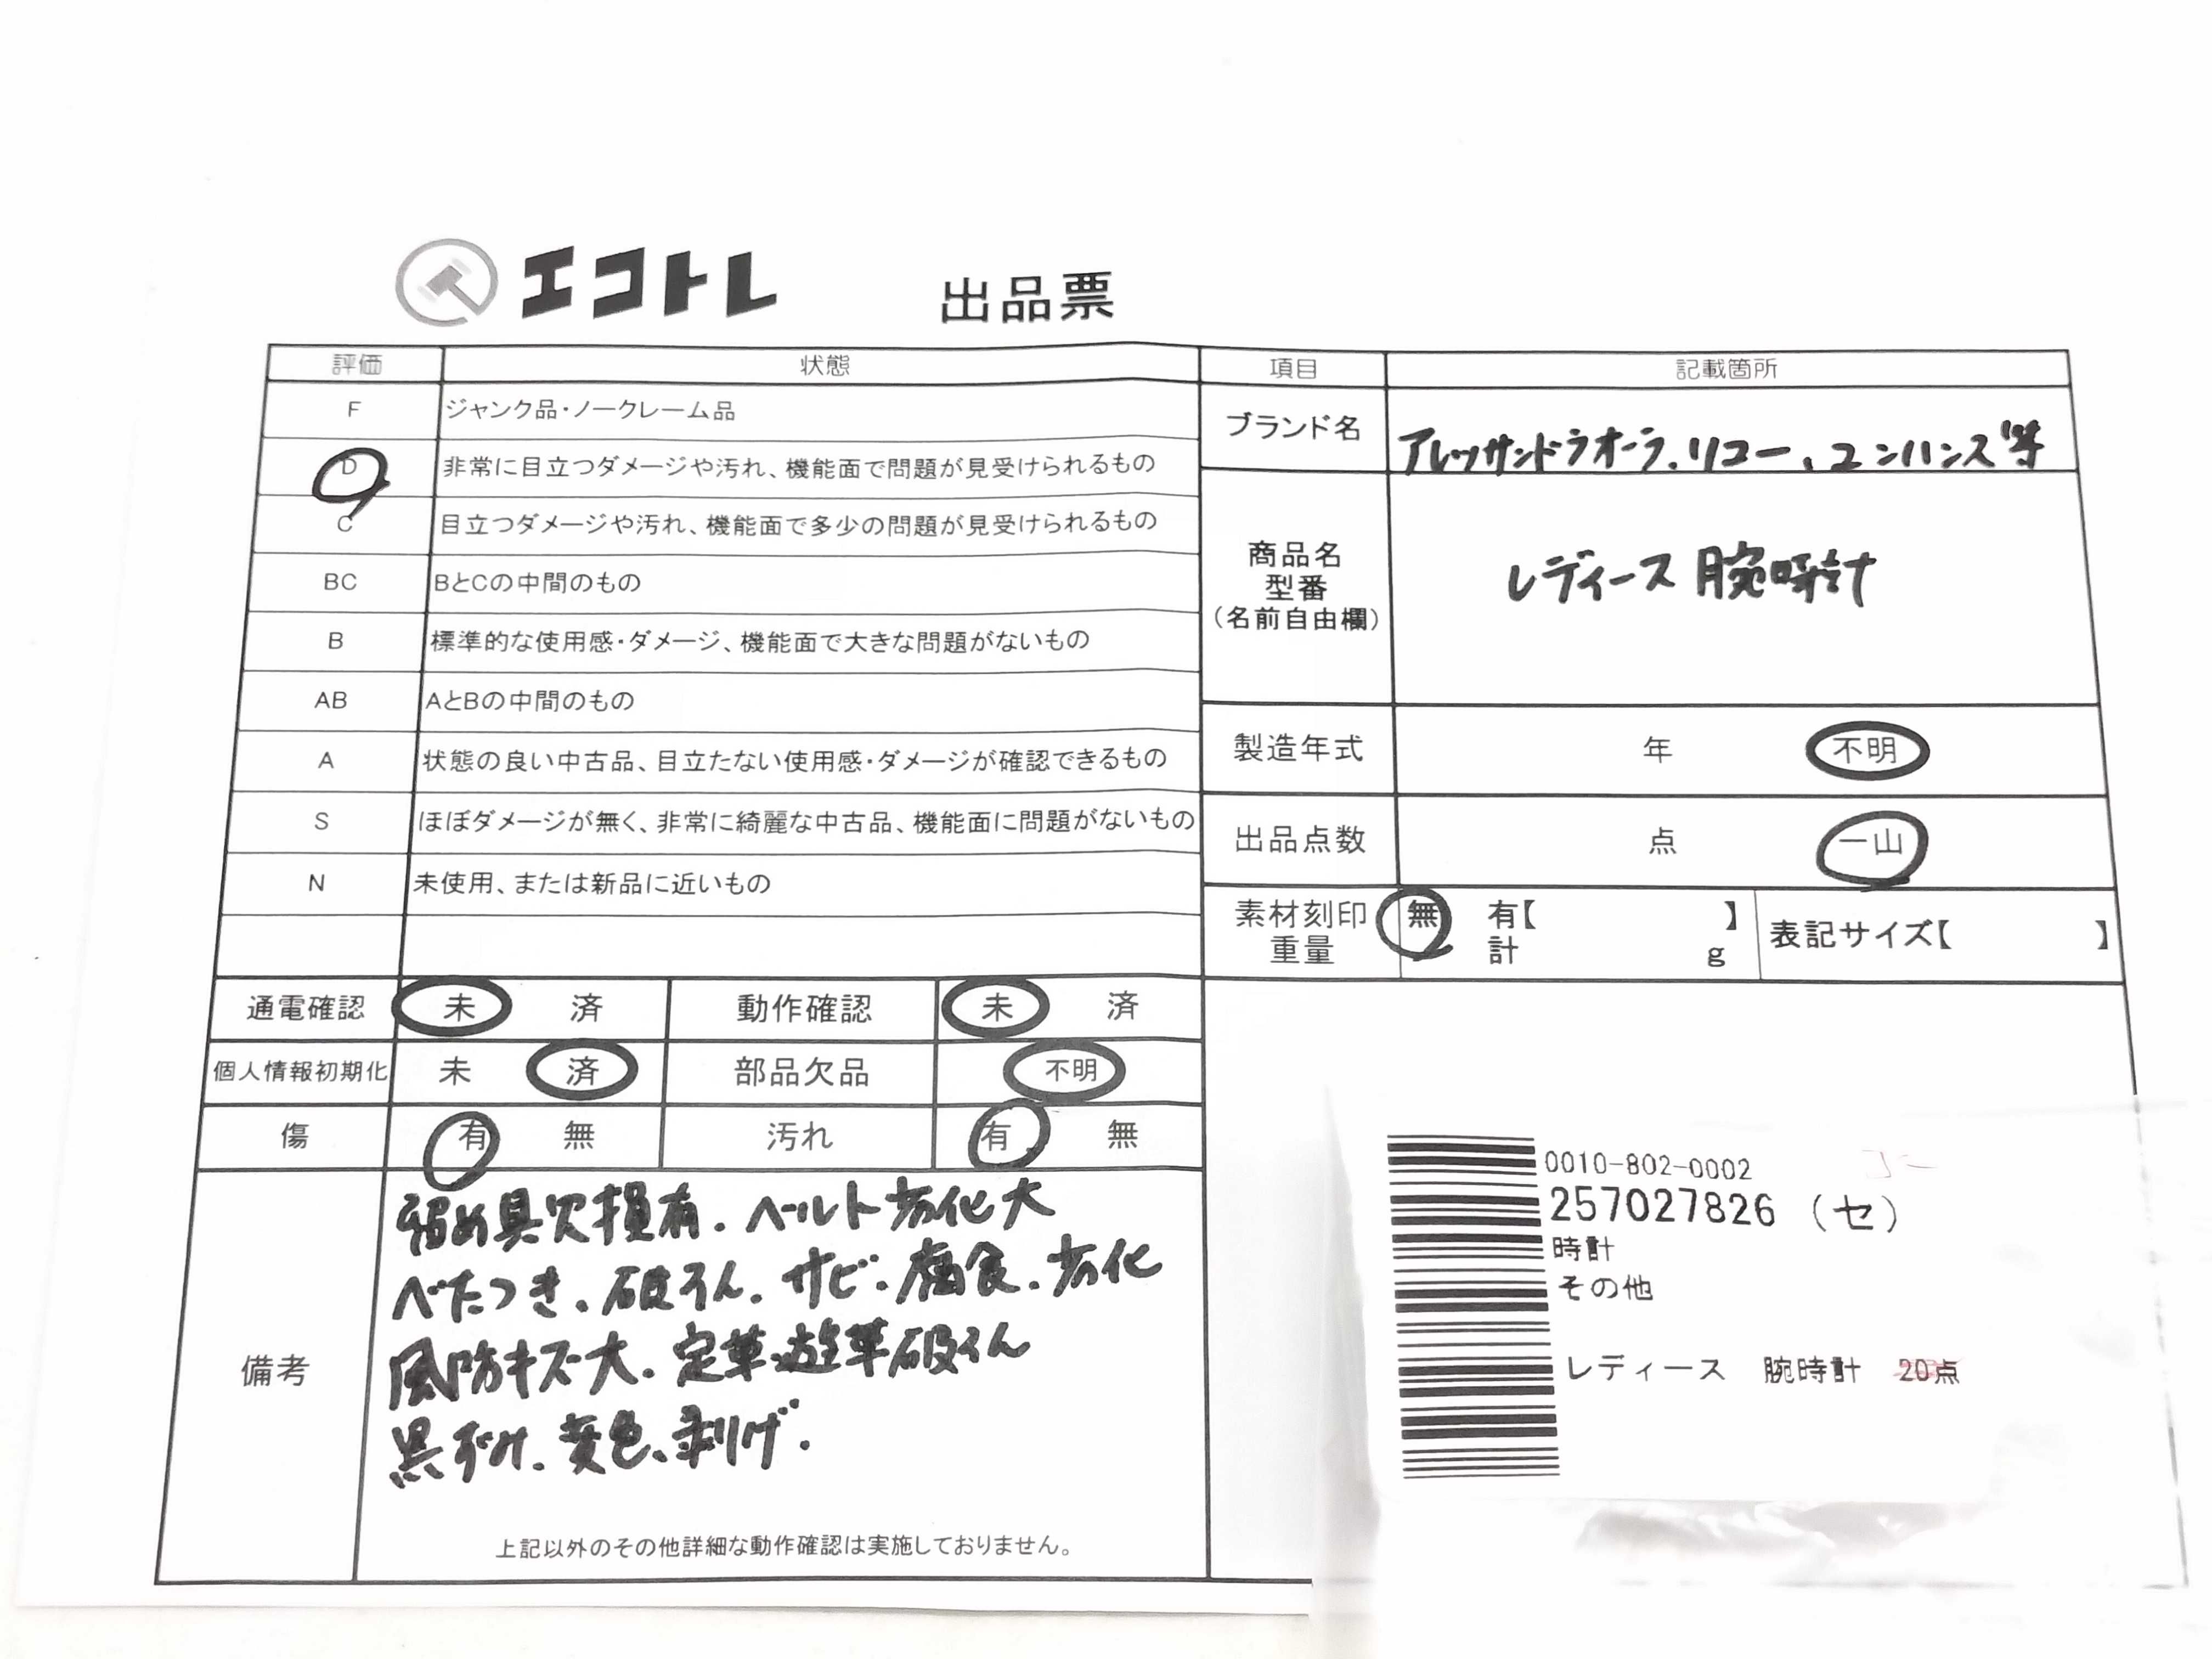 エコトレ 出品票
評価 状態
F ジャンク品・ノークレーム品
D 非常に目立つダメージや汚れ、機能面で問題が見受けられるもの
C 目立つダメージや汚れ、機能面で多少の問題が見受けられるもの
BC BとCの中間のもの
B 標準的な使用感・ダメージ、機能面で大きな問題がないもの
AB AとBの中間のもの
A 状態の良い中古品、目立たない使用感・ダメージが確認できるもの
S ほぼダメージが無く、非常に綺麗な中古品、機能面に問題がないもの
N 未使用、または新品に近いもの
通電確認 未 済 動作確認 未 済
個人情報初期化 未 済 部品欠品 不明
傷 有 無 汚れ 有 無
備考
留め具欠損有.ベルト劣化大
べたつき.破れん.サビ.腐食.劣化
風防キズ大.定革.遊革破れん
黒ずみ.変色、剥げ.
上記以外のその他詳細な動作確認は実施しておりません。
項目 記載箇所
ブランド名 アレッサンドラオーラ、リコー、ユンハンス等
商品名
型番
(名前自由欄)
レディース腕時計
製造年式 年 不明
出品点数 点 一山
素材刻印 無 有【 】
重量 計 g
表記サイズ【 】
0010-802-0002
257027826 (セ)
時計
その他
レディース 腕時計 20点